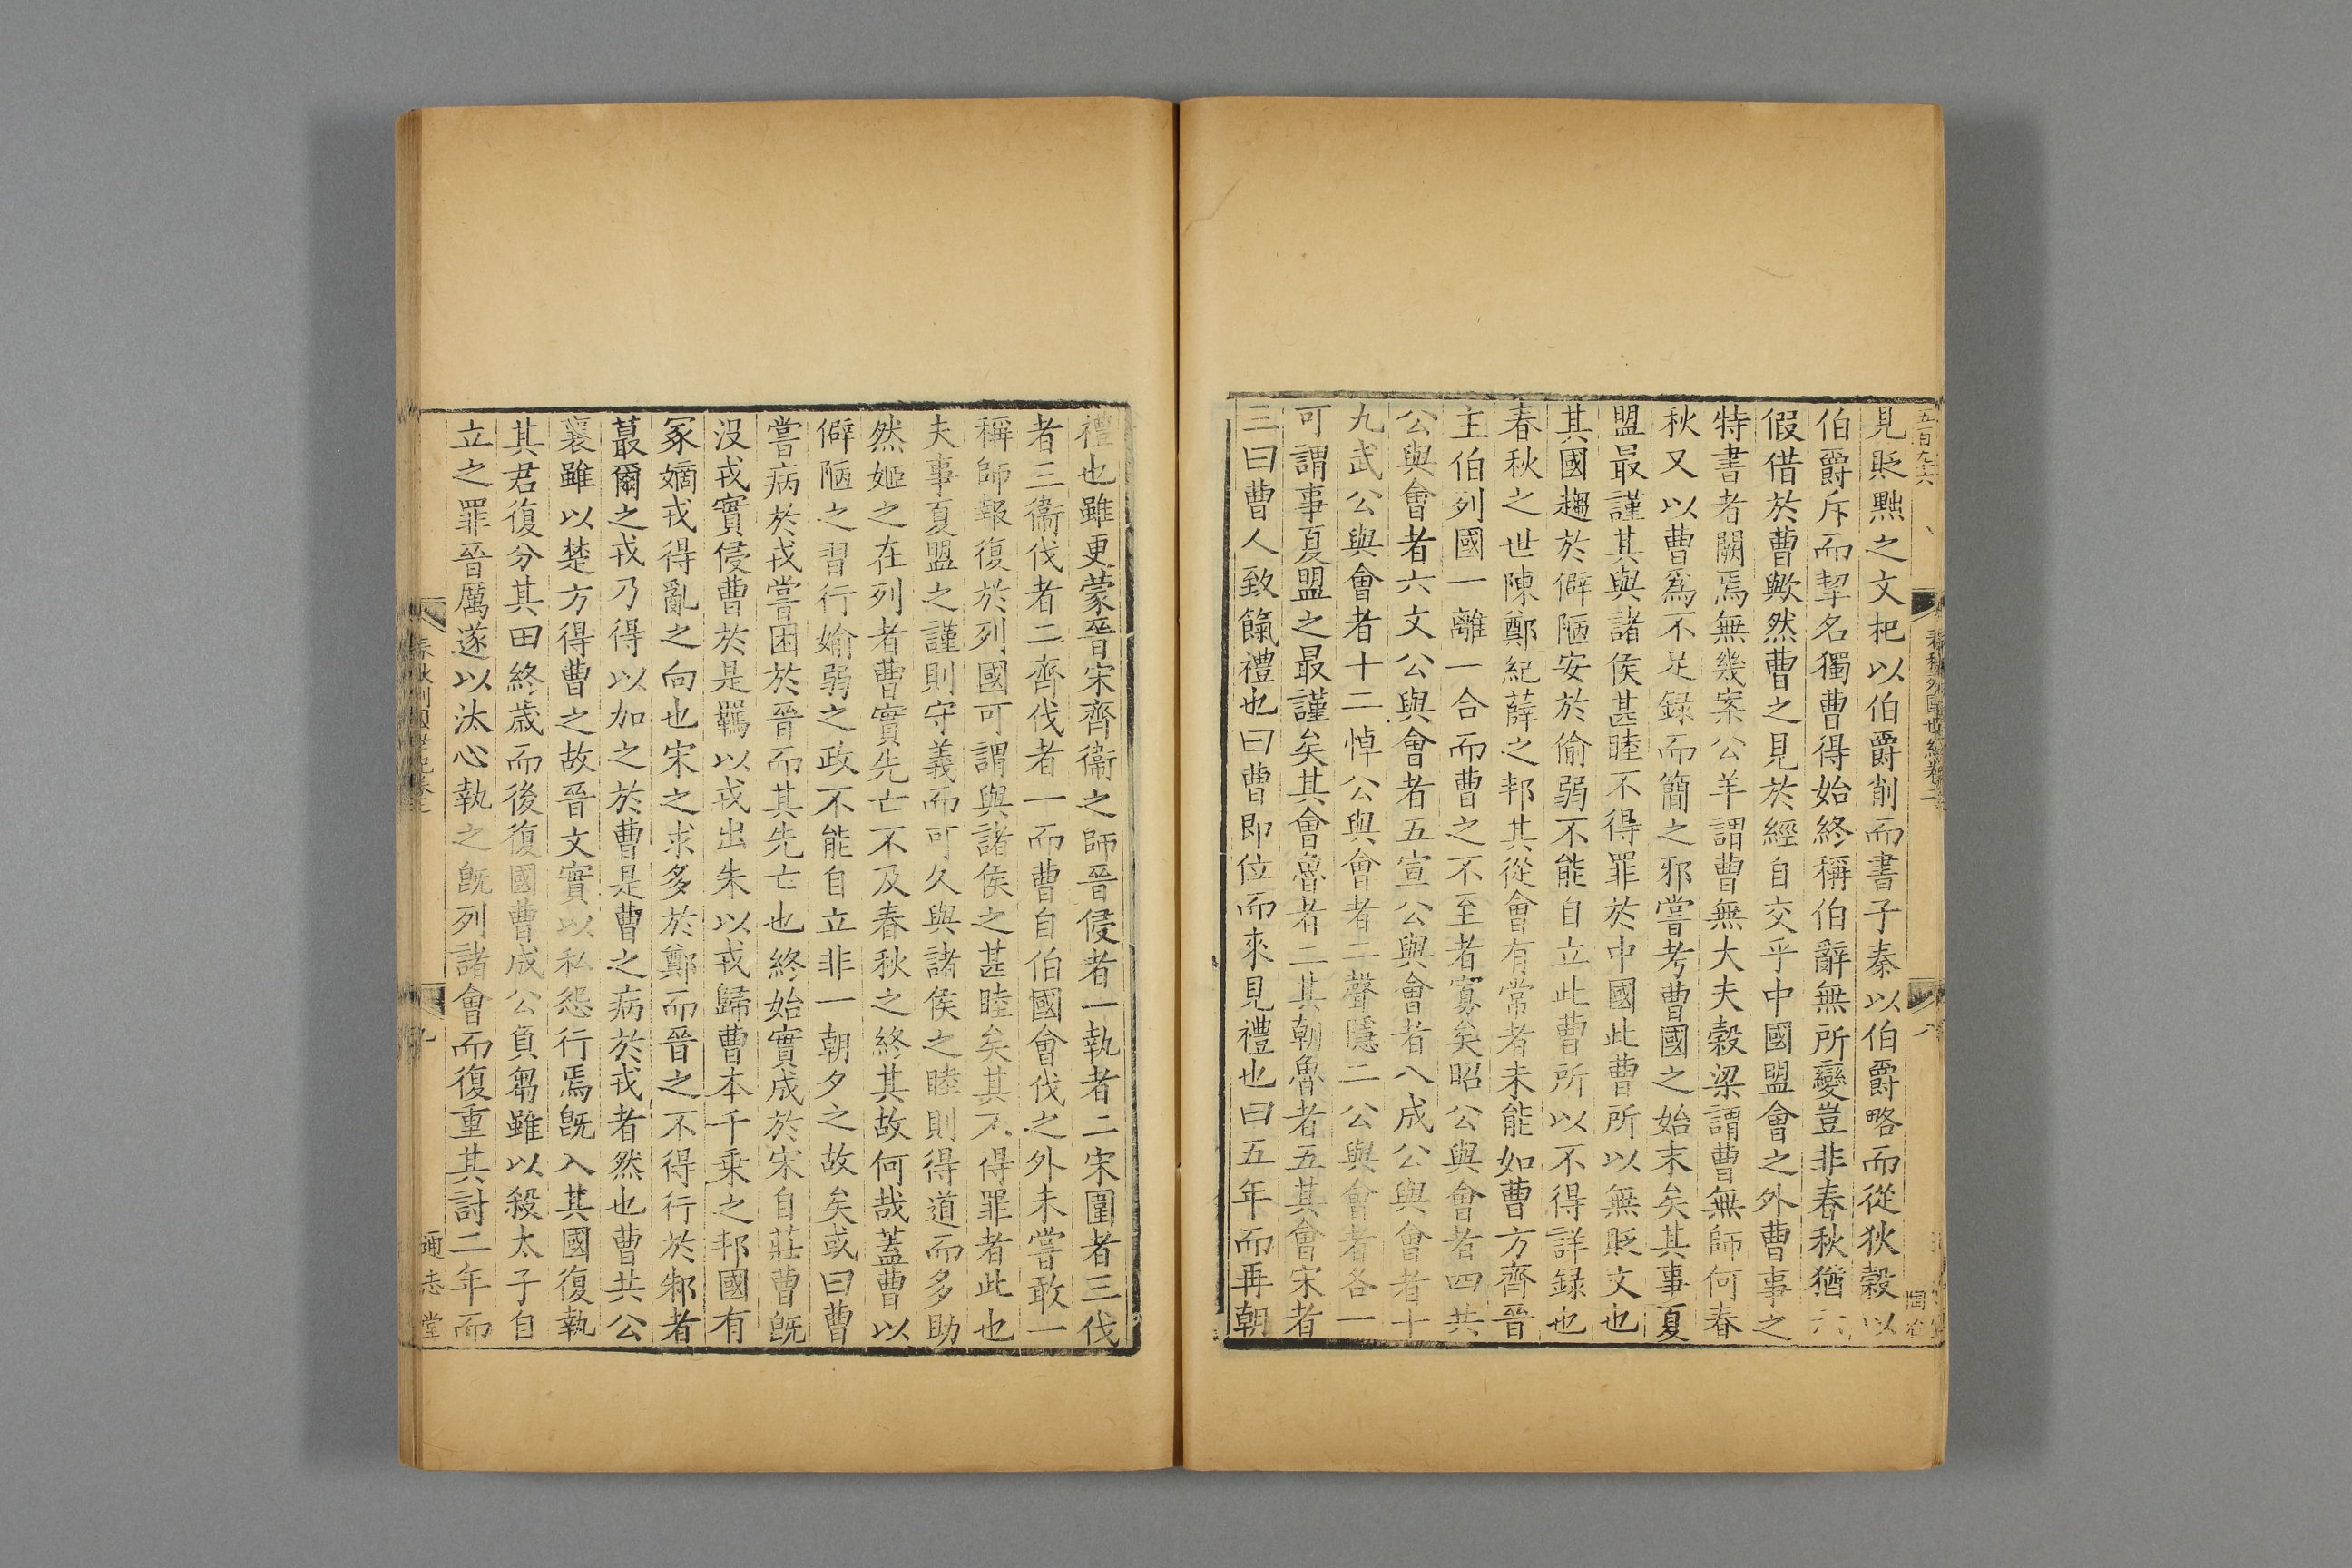 五百九六
見貶黜之文杞以伯爵削而書子秦以伯爵略而從狄穀以
伯爵斥而挈名獨曹得始終稱伯辭無所變豈非春秋猶
假借於曹歟然曹之見於經自交乎中國盟會之外曹事之
特書者闕焉無幾案公羊謂曹無大夫穀梁謂曹無師何春
秋又以曹爲不足録而簡之邪嘗考曹國之始末矣其事夏
盟最謹其與諸侯甚睦不得罪於中國此曹所以無貶文也
其國趨於僻陋安於偷弱不能自立此曹所以不得詳録也
春秋之世陳鄭紀薛之邦其從會有常者未能如曹方齊晉
主伯列國一離一合而曹之不至者寡矣昭公與會者四共
公與會者六文公與會者五宣公與會者八成公與會者十
九武公與會者十二悼公與會者二聲隱二公與會者各一
可謂事夏盟之最謹矣其會魯者二其朝魯者五其會宋者
三曰曹人致餼禮也曰曹即位而來見禮也曰五年而再朝
禮也雖更蒙晉宋齊衞之師晉侵者一執者二宋圍者三伐
者三衞伐者二齊伐者一而曹自伯國會伐之外未嘗敢一
稱師報復於列國可謂與諸侯之甚睦矣其不得罪者此也
夫事夏盟之謹則守義而可久與諸侯之睦則得道而多助
然姬之在列者曹實先亡不及春秋之終其故何哉蓋曹以
僻陋之習行媮弱之政不能自立非一朝夕之故矣或曰曹
嘗病於戎嘗困於晉而其先亡也終始實成於宋自莊曹既
没戎實侵曹於是羈以戎出朱以戎歸曹本千乗之邦國有
冢嫡戎得亂之向也宋之求多於鄭而晉之不得行於邾者
蕞爾之戎乃得以加之於曹是曹之病於戎者然也曹共公
襄雖以楚方得曹之故晉文實以私怨行焉旣入其國復執
其君復分其田終歳而後復國曹成公負芻雖以殺太子自
立之罪晉厲遂以汰心執之旣列諸會而復重其討二年而
春秋列國世紀卷二
九
通志堂